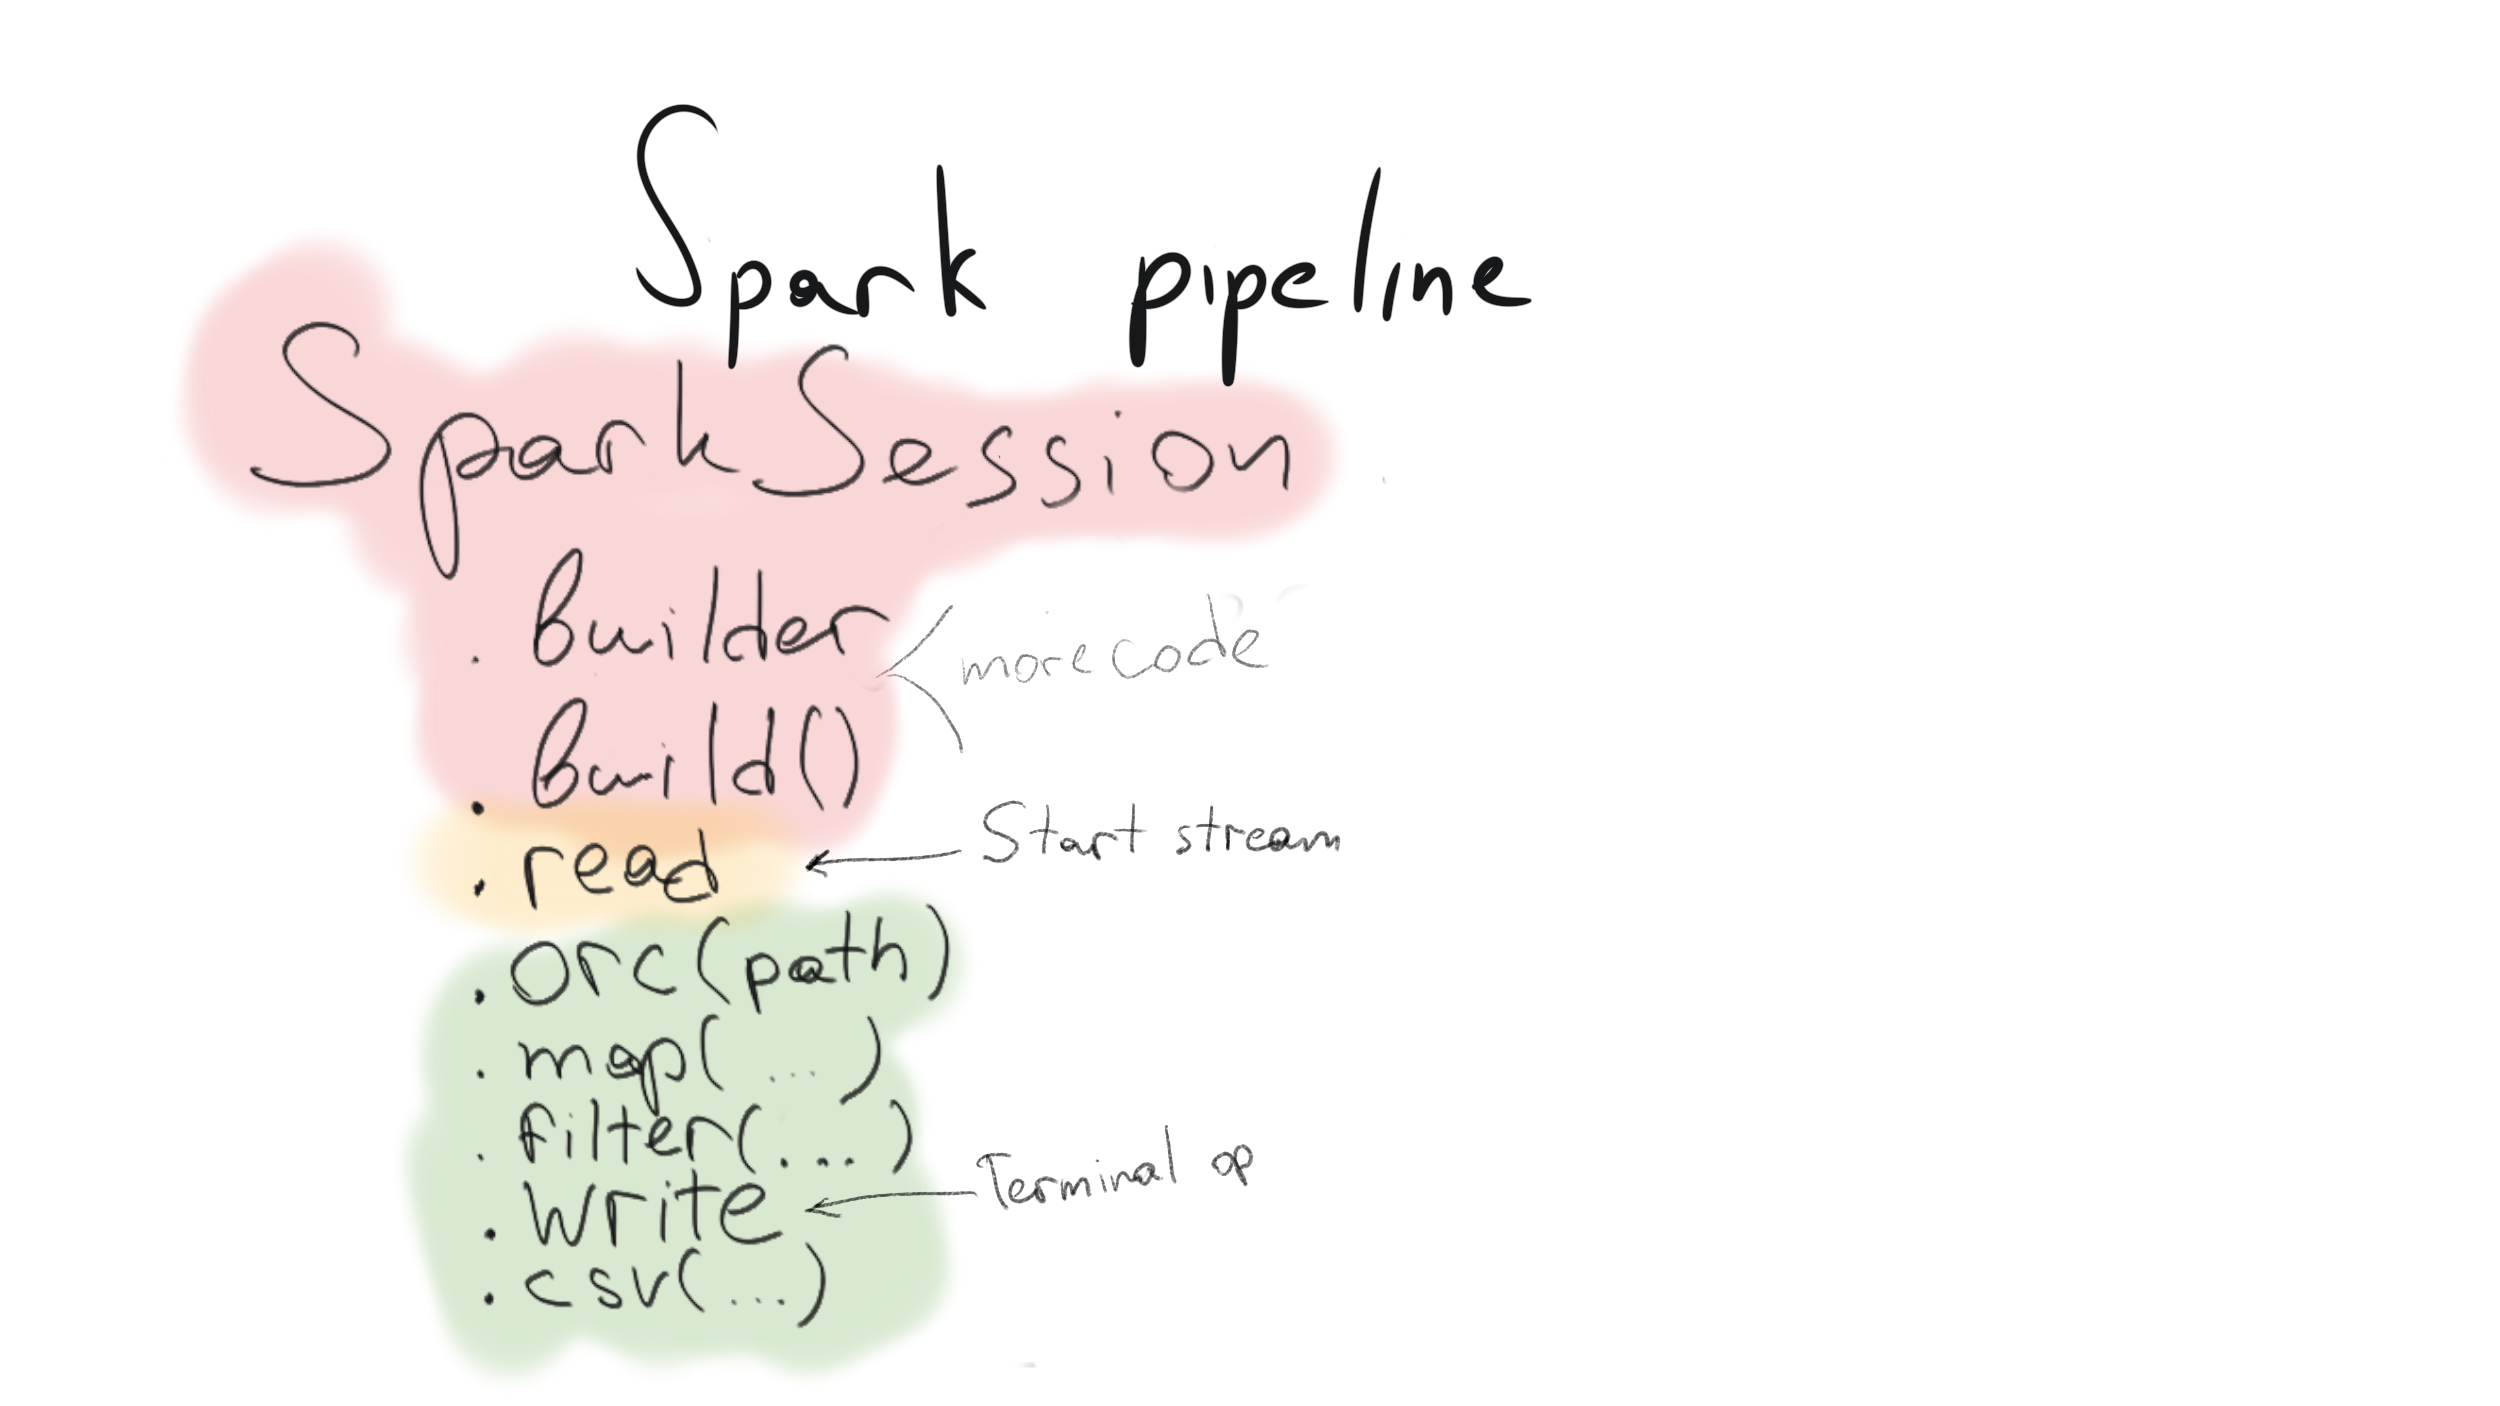 Spark pipeline
SparkSession
. builder
more code
. build()
. read
Start stream
. orc(path)
. map( ... )
. filter(...)
. write
Terminal op
. csv(...)